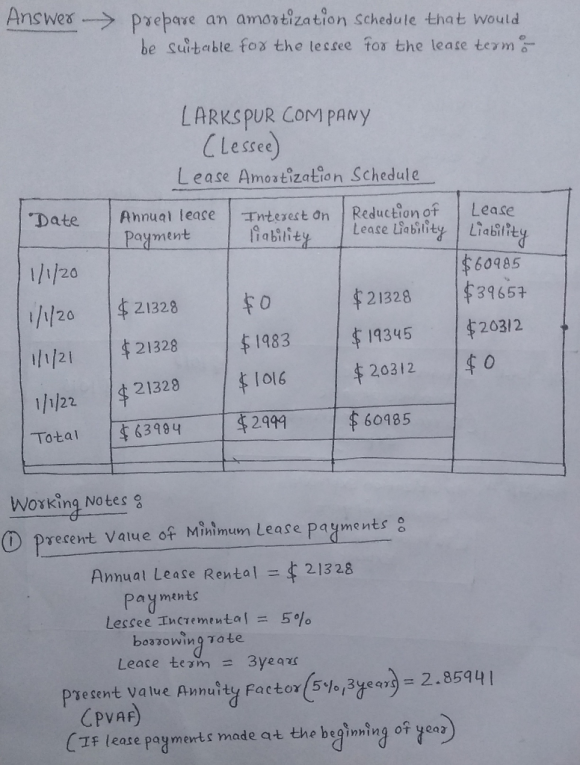 Answer → prepare an amortization schedule that would
be suitable for the lessee for the lease term :-
LARKSPUR COMPANY
(Lessee)
Lease Amortization Schedule
Date Annual lease payment Interest on liability Reduction of Lease Liability Lease Liability
1/1/20 $60985
1/1/20 $21328 $0 $21328 $39657
1/1/21 $21328 $1983 $19345 $20312
1/1/22 $21328 $1016 $20312 $0
Total $63984 $2999 $60985
Working Notes :
① present value of Minimum Lease payments :
Annual Lease Rental = $21328
payments
Lessee Incremental = 5%
borrowing rate
Lease term = 3years
present value Annuity Factor (5%,3years) = 2.85941
(PVAF)
(IF lease payments made at the beginning of year)